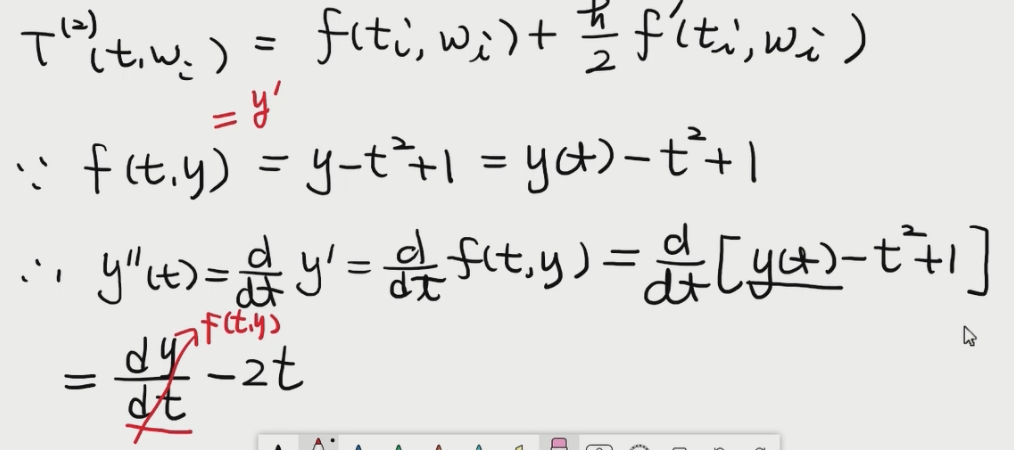 T⁽²⁾(t.wᵢ) = f(tᵢ, wᵢ) + h/2 f'(tᵢ, wᵢ)
= y'
∵ f(t.y) = y-t²+1 = y(t)-t²+1
∴ y''(t) = d/dt y' = d/dt f(t,y) = d/dt [y(t)-t²+1]
f(t,y)
= dy/dt -2t